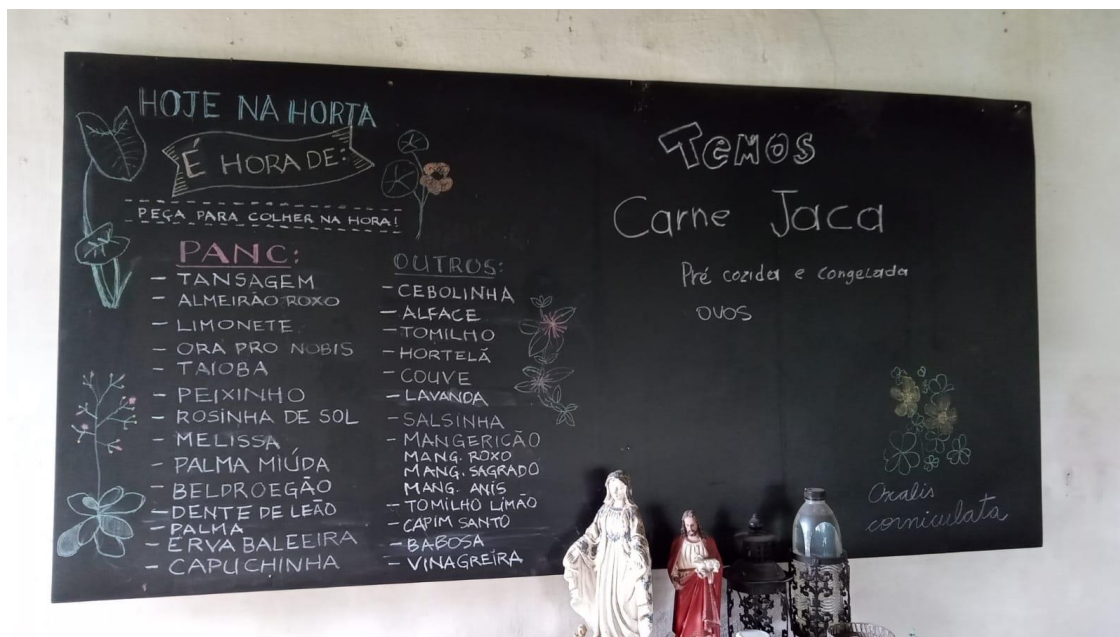 HOJE NA HORTA
É HORA DE:
PEÇA PARA COLHER NA HORA!
PANC:
- TANSAGEM
- ALMEIRÃO ROXO
- LIMONETE
- ORA PRO NOBIS
- TAIOBA
- PEIXINHO
- ROSINHA DE SOL
- MELISSA
- PALMA MIÚDA
- BELDROEGÃO
- DENTE DE LEÃO
- PALMA
- ERVA BALEEIRA
- CAPUCHINHA
OUTROS:
- CEBOLINHA
- ALFACE
- TOMILHO
- HORTELÃ
- COUVE
- LAVANDA
- SALSINHA
- MANGERICÃO
MANG. ROXO
MANG. SAGRADO
MANG. ANIS
- TOMILHO LIMÃO
- CAPIM SANTO
- BABOSA
- VINAGREIRA
Temos
Carne Jaca
Pré cozida e congelada
ovos
Oxalis
corniculata